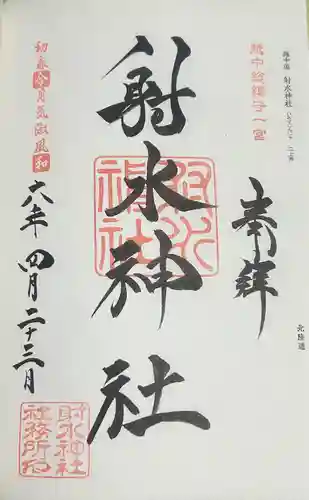 越中国 射水神社
北陸道
越中総鎮守一宮
奉拝
射水神社
射水神社
初春令月気淑風和
六年 四月二十三日
射水神社社務所印